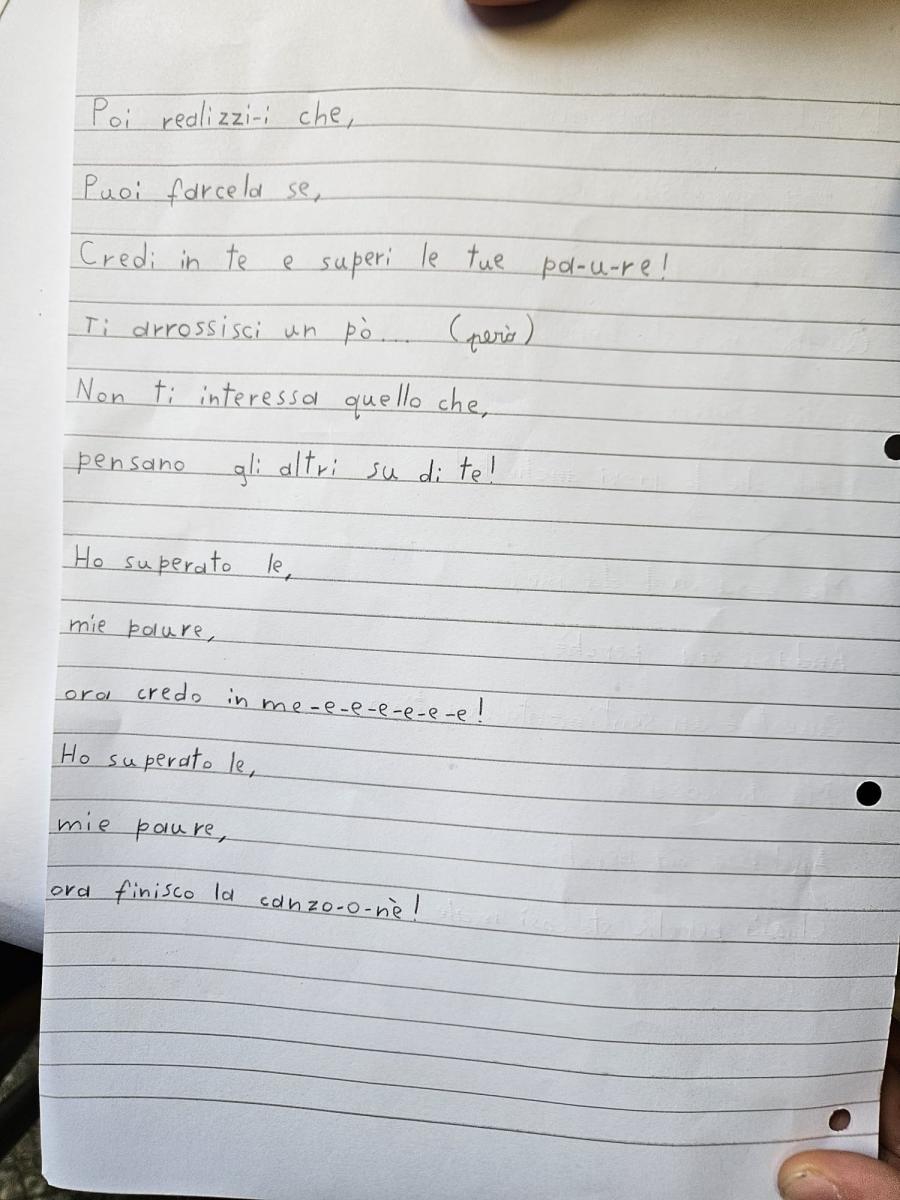 Poi realizzi-i che,
Puoi farcela se,
Credi in te e superi le tue pa-u-re!
Ti arrossisci un pò... (però)
Non ti interessa quello che,
pensano gli altri su di te!
Ho superato le,
mie paure,
ora credo in me-e-e-e-e-e-e!
Ho superato le,
mie paure,
ora finisco la canzo-o-nè!